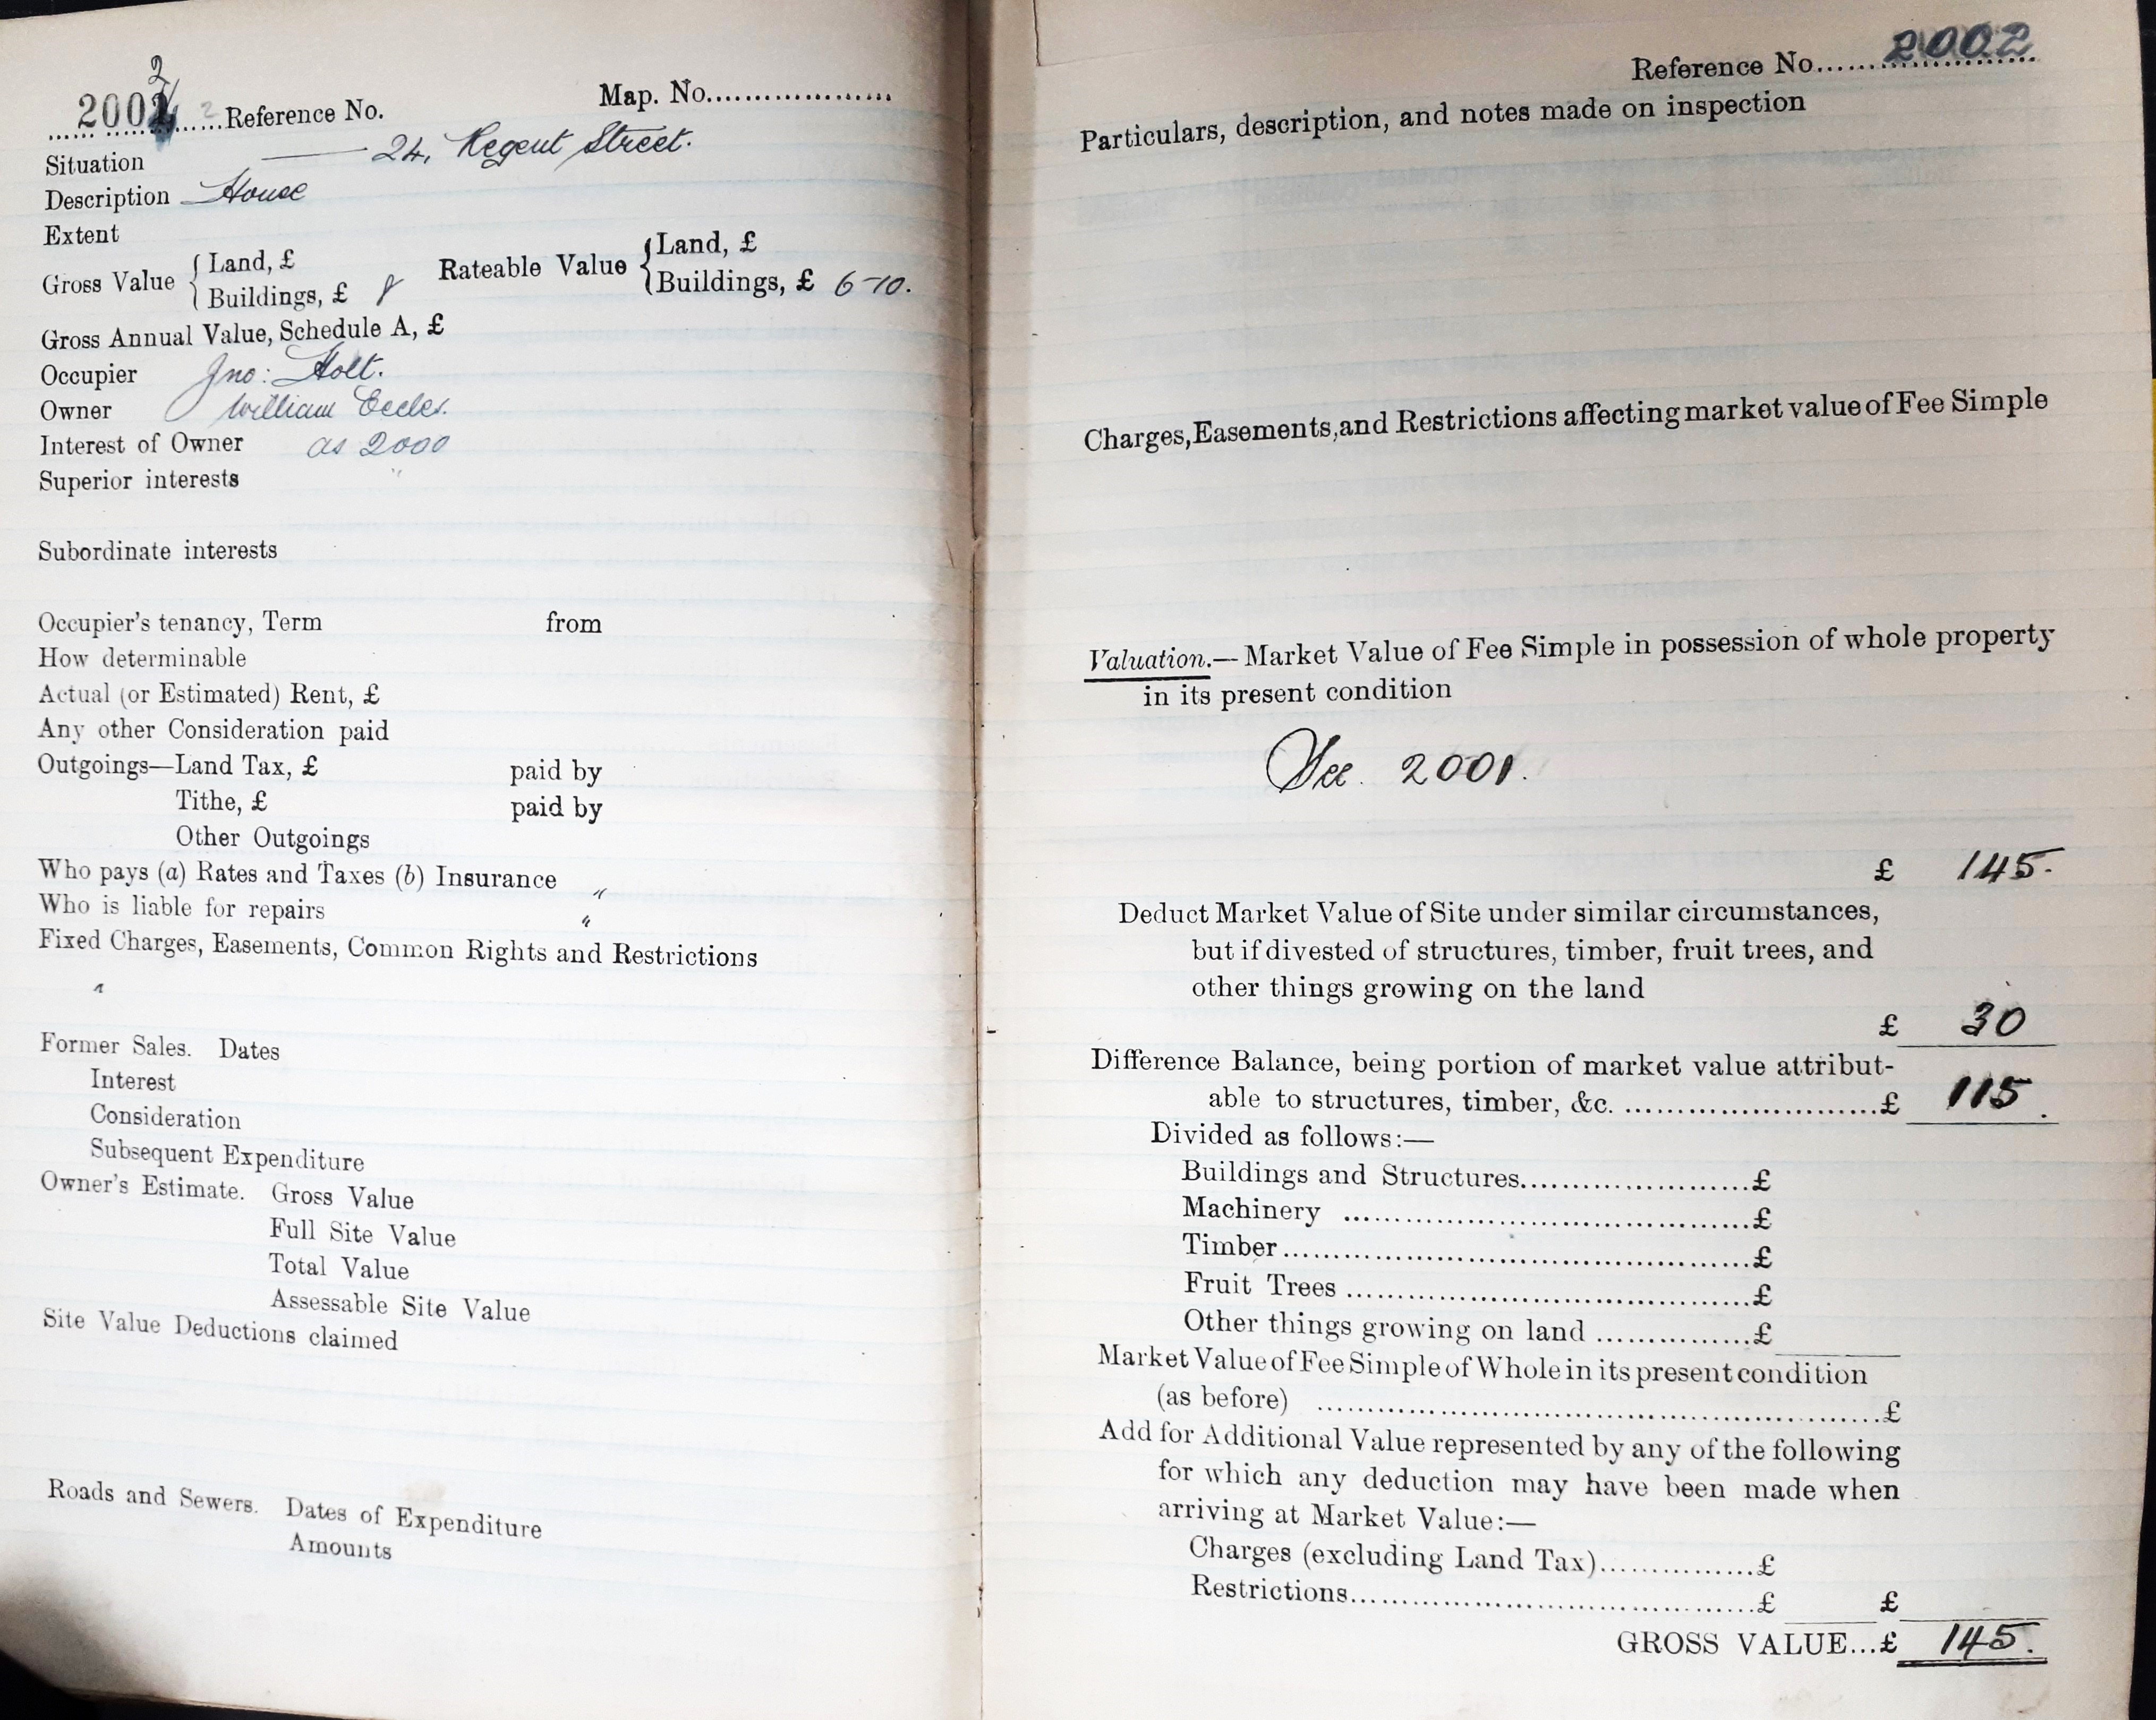 2
2002 Reference No. Map. No.
Situation 24, Regent Street.
Description House
Extent
Gross Value { Land, £ Rateable Value { Land, £
Buildings, £ 8 Buildings, £ 6-10.
Gross Annual Value, Schedule A, £
Occupier Jno: Holt.
Owner William Eccles.
Interest of Owner as 2000
Superior interests "
Subordinate interests
Occupier's tenancy, Term from
How determinable
Actual (or Estimated) Rent, £
Any other Consideration paid
Outgoings—Land Tax, £ paid by
Tithe, £ paid by
Other Outgoings
Who pays (a) Rates and Taxes (b) Insurance "
Who is liable for repairs "
Fixed Charges, Easements, Common Rights and Restrictions
"
Former Sales. Dates
Interest
Consideration
Subsequent Expenditure
Owner's Estimate. Gross Value
Full Site Value
Total Value
Assessable Site Value
Site Value Deductions claimed
Roads and Sewers. Dates of Expenditure
Amounts
Reference No. 2002
Particulars, description, and notes made on inspection
Charges, Easements, and Restrictions affecting market value of Fee Simple
Valuation.—Market Value of Fee Simple in possession of whole property
in its present condition
See 2001.
£ 145.
Deduct Market Value of Site under similar circumstances,
but if divested of structures, timber, fruit trees, and
other things growing on the land
£ 30
Difference Balance, being portion of market value attribut-
able to structures, timber, &c. £ 115.
Divided as follows:—
Buildings and Structures £
Machinery £
Timber £
Fruit Trees £
Other things growing on land £
Market Value of Fee Simple of Whole in its present condition
(as before) £
Add for Additional Value represented by any of the following
for which any deduction may have been made when
arriving at Market Value:—
Charges (excluding Land Tax) £
Restrictions £ £
GROSS VALUE...£ 145.